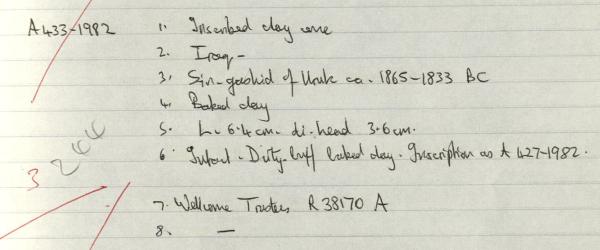 A433-1982 1. Inscribed clay cone
2. Iraq -
3. Sin-gashid of Uruk ca. 1865-1833 BC
4. Baked clay
5. L. 6.4cm. di. head 3.6cm.
6. Intact. Dirty-buff baked clay. Inscription as A 427-1982.
3 266
7. Wellcome Trustees R 38170 A
8. —